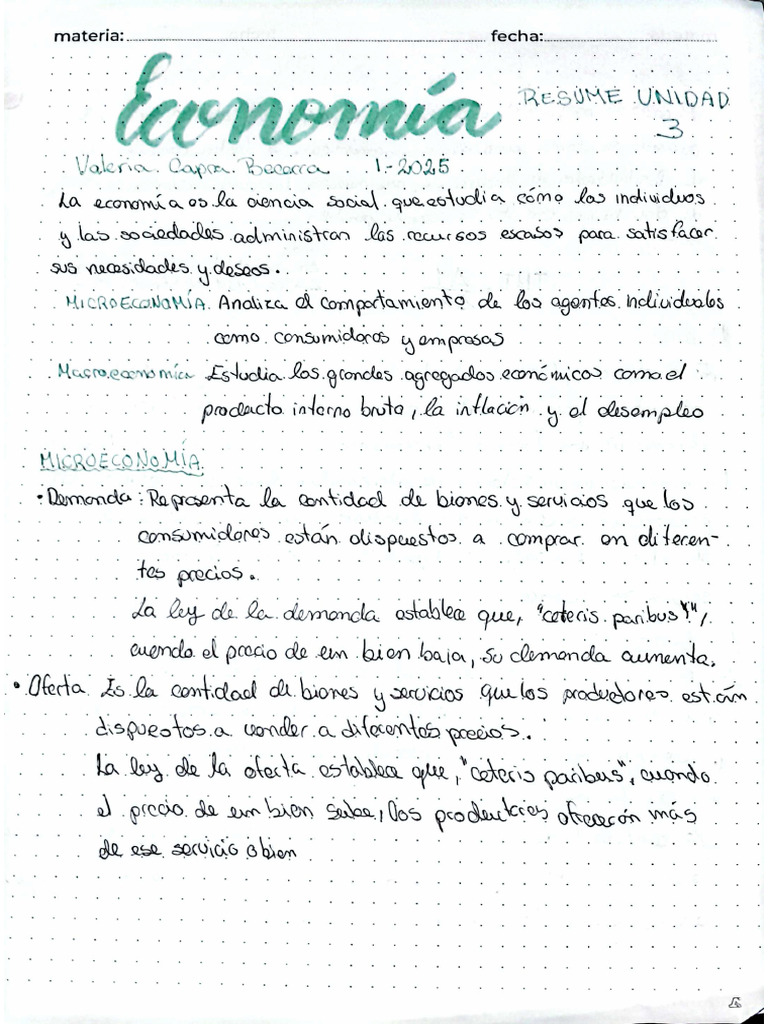 materia: fecha:
Economía RESUME UNIDAD
3
Valeria Capra Becerra 1-2025
La economía es la ciencia social que estudia cómo los individuos
y las sociedades administran los recursos escasos para satisfacer
sus necesidades y deseos.
MICROECONOMÍA Analiza el comportamiento de los agentes individuales
como consumidores y empresas
Macroeconomía Estudia los grandes agregados económicos como el
producto interno bruto, la inflación y el desempleo
MICROECONOMÍA
• Demanda: Representa la cantidad de bienes y servicios que los
consumidores están dispuestos a comprar en diferen-
tes precios.
La ley de la demanda establece que, "ceteris paribus",
cuando el precio de un bien baja, su demanda aumenta.
• Oferta Es la cantidad de bienes y servicios que los productores están
dispuestos a vender a diferentes precios.
La ley de la oferta establece que, "ceteris paribus", cuando
el precio de un bien sube, los productores ofrecerán más
de ese servicio o bien